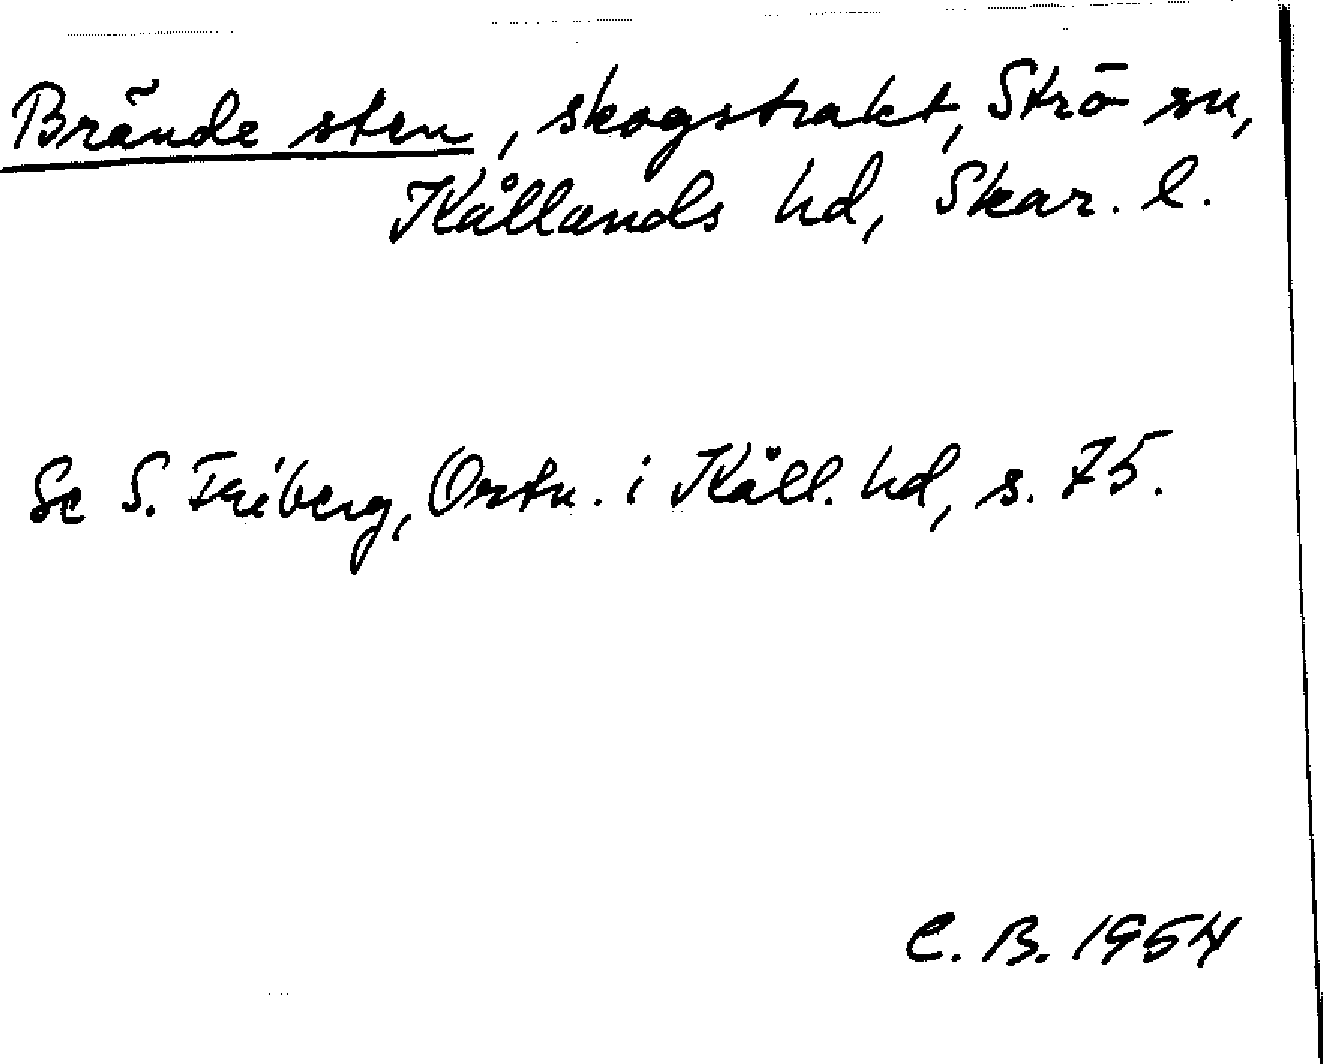 Brände sten, skogstrakt, Strö sn,
Kållands hd, Skar. l.
Se S. Friberg, Ortn. i Kåll. hd, s. 75.
C. B. 1954